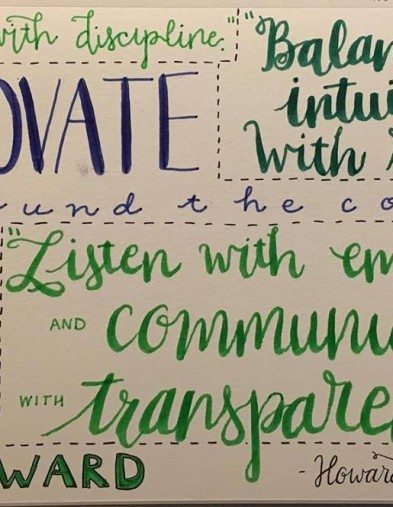 with discipline."
"Balan
intui
With
OVATE
und the co
"Listen with em
AND communi
WITH transpare
WARD
- Howard